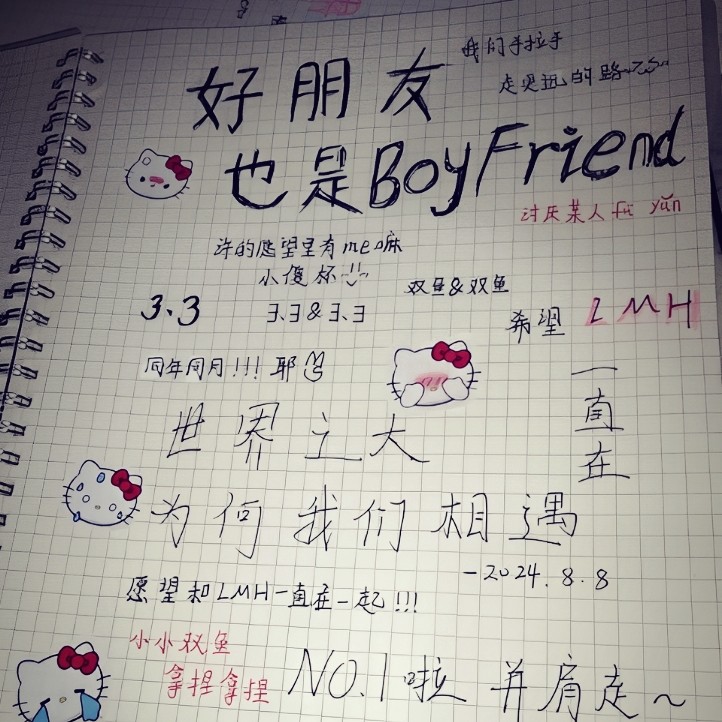 好朋友
我们手拉手
走更远的路
也是BoyFriend
讨厌某人fū yǔn
许的愿望里有me嘛
小傻杯
双鱼&双鱼
3.3
3.3&3.3
希望 LMH
一直在
同年同月!!!耶
世界之大
为何我们相遇
-2024.8.8
愿望和LMH一直在一起!!!
小小双鱼
拿捏拿捏
NO.1啦 并肩走~